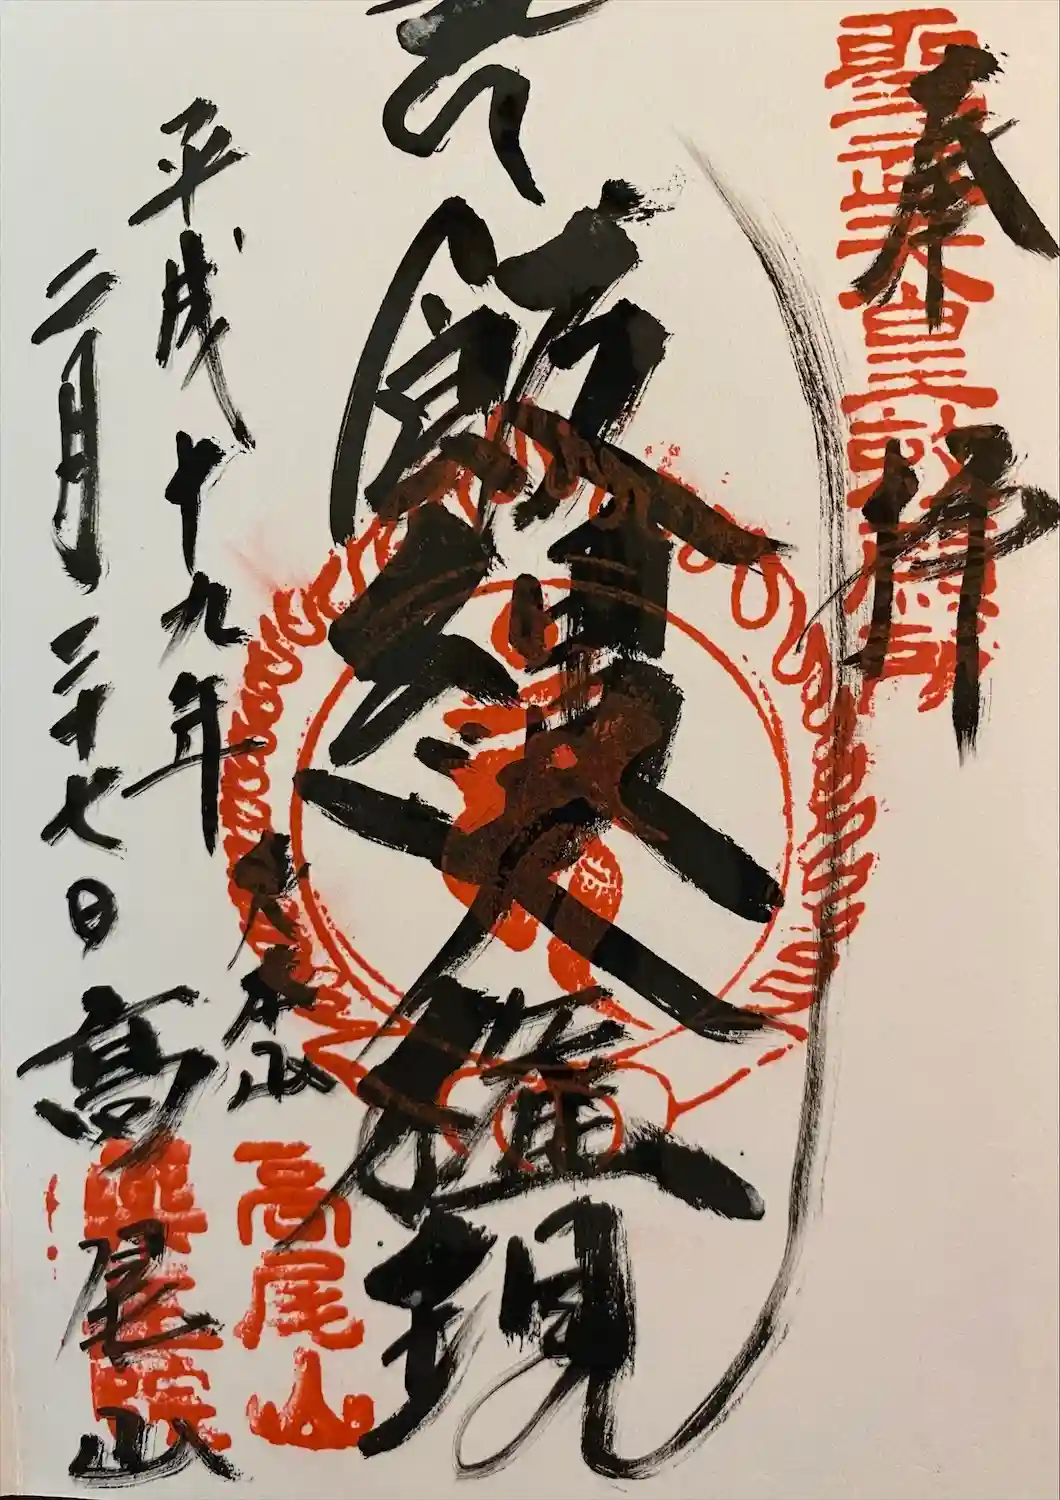 奉拝
聖武天皇勅願所
飯縄大権現
平成十九年
二月二十七日
大本山
高尾山
高尾山
薬王院